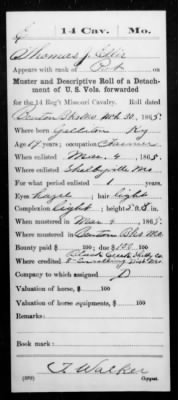 14 Cav. Mo.
Thomas J. Ellis
Appears with rank of Pvt on
Muster and Descriptive Roll of a Detachment
of U. S. Vols. forwarded
for the 14 Reg't Missouri Cavalry. Roll dated
Benton Bks Mo, Mch 30, 1865.
Where born Gallatin Ky
Age 19 years; occupation Farmer
When enlisted Mar. 4, 1865.
Where enlisted Shelbyville Mo
For what period enlisted 1 years.
Eyes hazel; hair light
Complexion Light; height 5 ft. 8 in.
When mustered in Mar 4, 1865.
Where mustered in Benton Bks Mo
Bounty paid $ 100; due $ 100 100
Where credited Black Creek Shelby Co.
Company to which assigned D
Valuation of horse, $ 100
Valuation of horse equipments, $ 100
Remarks:
Book mark:
T. Walker
Copyist.